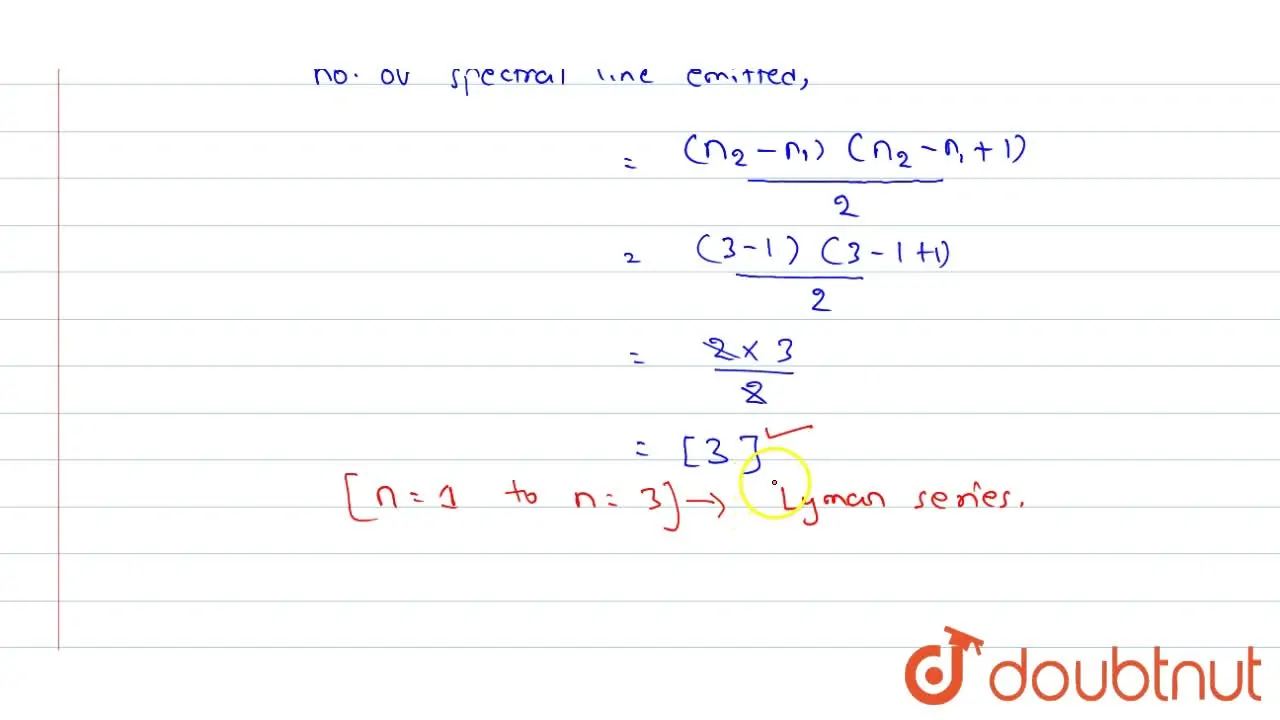 no. of spectral line emitted,
= (n2 - n1) (n2 - n1 + 1)
2
= (3 - 1) (3 - 1 + 1)
2
= 2 x 3
2
= [3] ✓
[n = 1 to n = 3] → Lyman series.
doubtnut